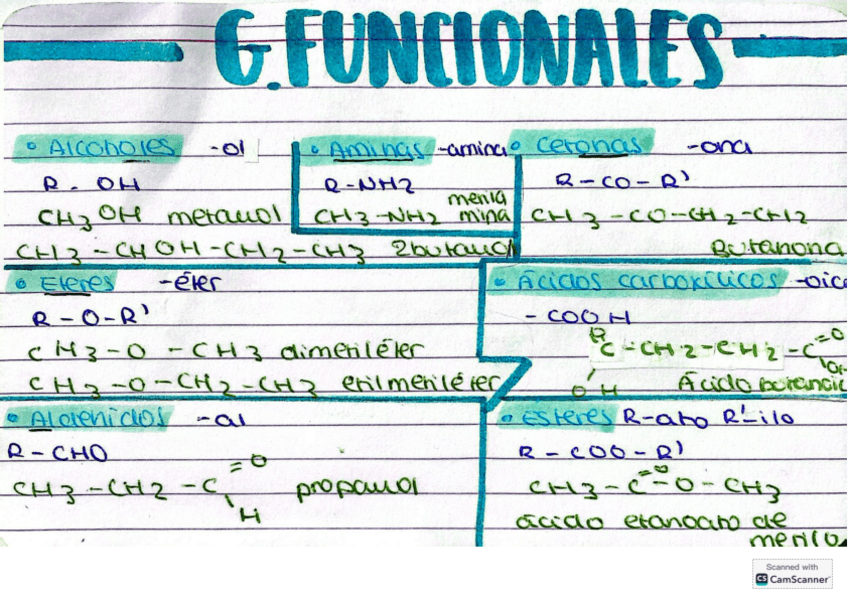 G.FUNCIONALES
• Alcoholes -ol
R - OH
CH3OH metanol
CH3-CHOH-CH2-CH3 2butanol
• Aminas -amina
R-NH2
CH3-NH2 metila mina
• Cetonas -ona
R-CO-R'
CH3-CO-CH2-CH2
Butanona
• Eteres -éter
R-O-R'
CH3-O-CH3 dimetiléter
CH3-O-CH2-CH3 etilmetiléter
• Ácidos carboxílicos -oico
-COOH
C-CH2-CH2-C=O
OH
Ácido butanoic
• Aldehidos -al
R-CHO
=O
CH3-CH2-C propanal
H
• Esteres R-ato R'-ilo
R-COO-R'
=O
CH3-C-O-CH3
ácido etanoato de
metilo
Scanned with
CS CamScanner